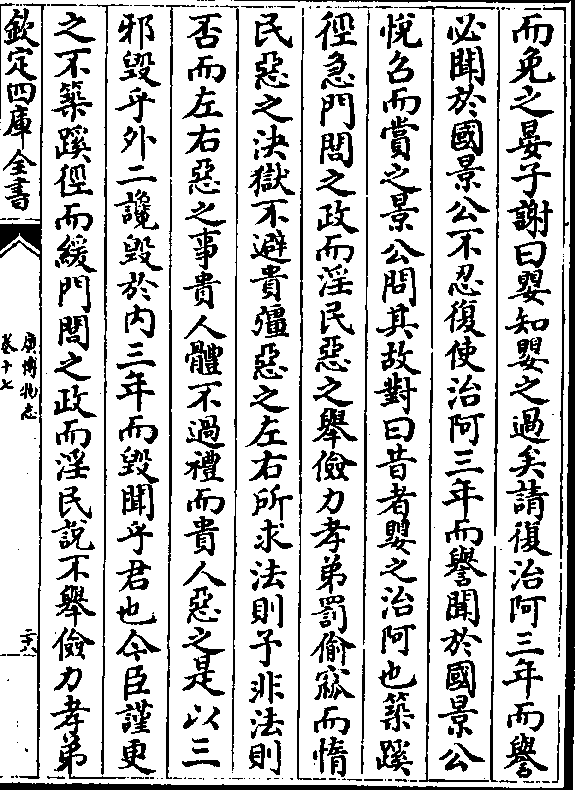 而免之晏子謝曰嬰知嬰之過矣請復治阿三年而譽
必聞於國景公不忍復使治阿三年而譽聞於國景公
悅召而賞之景公問其故對曰昔者嬰之治阿也築蹊
徑急門閭之政而淫民惡之舉儉力孝弟罰偷窳而惰
民惡之決獄不避貴彊惡之左右所求法則予非法則
否而左右惡之事貴人體不過禮而貴人惡之是以三
邪毀乎外二讒毀於内三年而毀聞乎君也今臣謹更
之不築蹊徑而緩門閭之政而淫民說不舉儉力孝弟
欽定四庫全書
廣博物志
卷十七
二十八